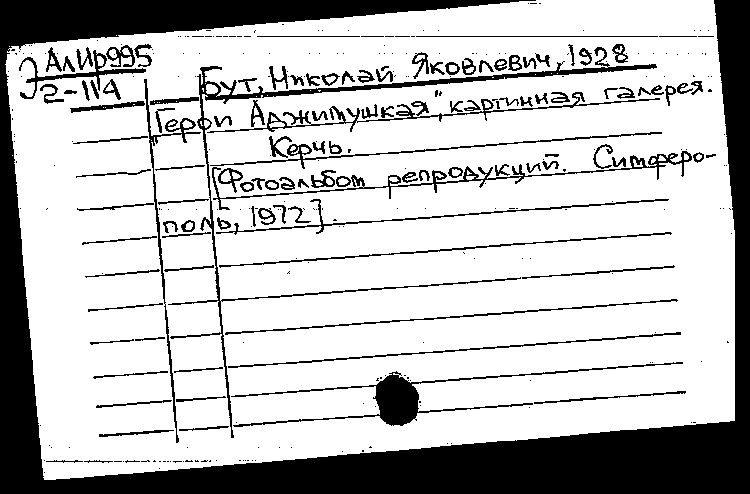 Э АлИр995
2-114
Бут, Николай Яковлевич, 1928
"Герои Аджимушкая", картинная галерея.
Керчь.
[Фотоальбом репродукций. Симферо-
поль, 1972].